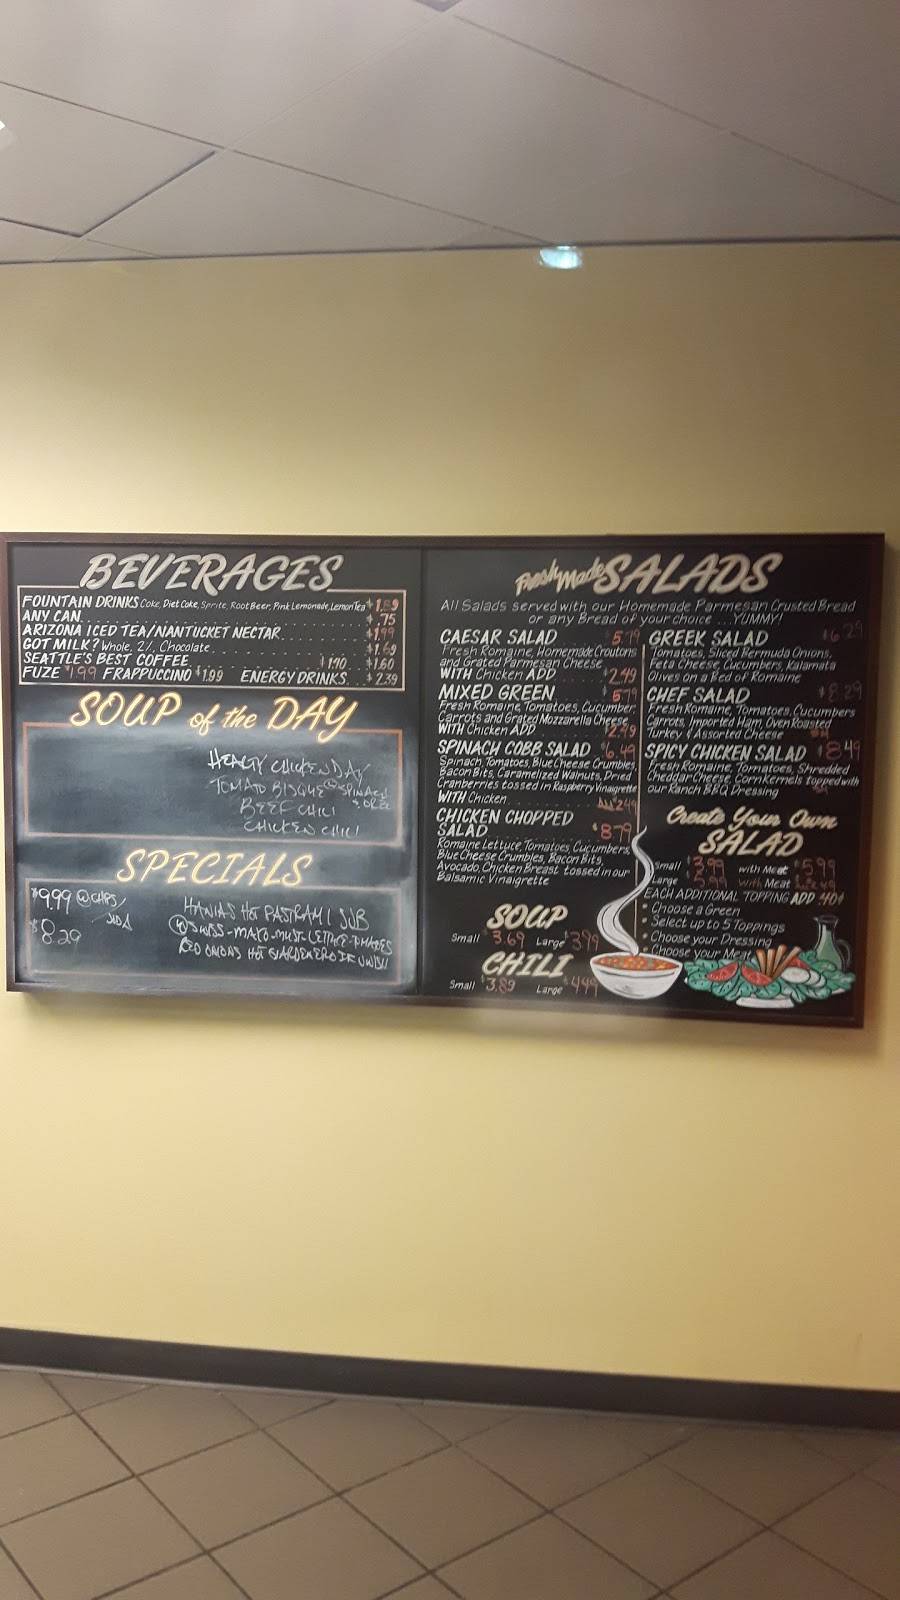 BEVERAGES
FOUNTAIN DRINKS Coke, Diet Coke, Sprite, Root Beer, Pink Lemonade, Lemon Tea $1.89
ANY CAN $.75
ARIZONA ICED TEA/NANTUCKET NECTAR $1.99
GOT MILK? Whole, 2%, Chocolate $1.69
SEATTLE'S BEST COFFEE $1.60
FUZE $1.99 FRAPPUCCINO $1.99 ENERGY DRINKS $2.39
SOUP of the DAY
CHICKEN DAY
TOMATO BISQUE
BEEF CHILI
CHICKEN CHILI
SPECIALS
$9.99
$8.29
HOT PASTRAMI SUB
MAYO
RED ONIONS HOT
Fresh Made SALADS
All Salads served with our Homemade Parmesan Crusted Bread
or any Bread of your choice ... YUMMY!
CAESAR SALAD $5.79
Fresh Romaine, Homemade Croutons
and Grated Parmesan Cheese
WITH Chicken ADD $2.49
MIXED GREEN $5.79
Fresh Romaine, Tomatoes, Cucumber,
Carrots and Grated Mozzarella Cheese
WITH Chicken ADD $2.99
SPINACH COBB SALAD $6.49
Spinach, Tomatoes, Blue Cheese Crumbles,
Bacon Bits, Caramelized Walnuts, Dried
Cranberries tossed in Raspberry Vinaigrette
WITH Chicken 2.49
CHICKEN CHOPPED
SALAD $8.79
Romaine Lettuce, Tomatoes, Cucumbers,
Blue Cheese Crumbles, Bacon Bits,
Avocado, Chicken Breast tossed in our
Balsamic Vinaigrette
SOUP
Small $3.69 Large $3.99
CHILI
Small $3.89 Large $4.99
GREEK SALAD $6.29
Tomatoes, Sliced Bermuda Onions,
Feta Cheese, Cucumbers, Kalamata
Olives on a Bed of Romaine
CHEF SALAD $8.29
Fresh Romaine, Tomatoes, Cucumbers
Carrots, Imported Ham, Oven Roasted
Turkey & Assorted Cheese
SPICY CHICKEN SALAD $8.49
Fresh Romaine, Tomatoes, Shredded
Cheddar Cheese, Corn Kernels topped with
our Ranch BBQ Dressing
Create Your Own
SALAD
Small $3.99 with Meat $5.99
Large with Meat
EACH ADDITIONAL TOPPING ADD .40¢
• Choose a Green
• Select up to 5 Toppings
• Choose your Dressing
• Choose your Meat